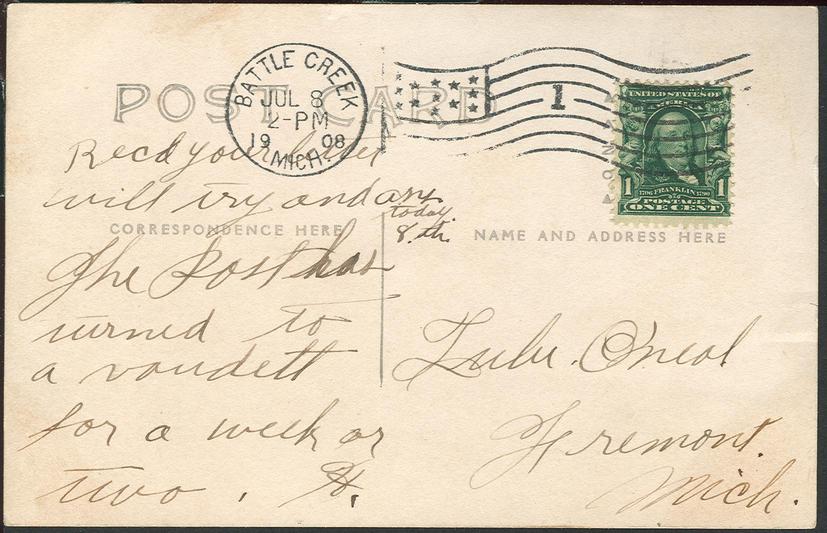 POST CARD
BATTLE CREEK
JUL 8
2-PM
1908
MICH.
1
UNITED STATES OF
AMERICA
1 1706 FRANKLIN 1790 1
POSTAGE
ONE CENT
CORRESPONDENCE HERE
NAME AND ADDRESS HERE
Recd your letter
will try and ans
today
8.th.
The Post has
turned to
a vaudett
for a week or
two. H.
Lulu. O'neal
Fremont.
Mich.